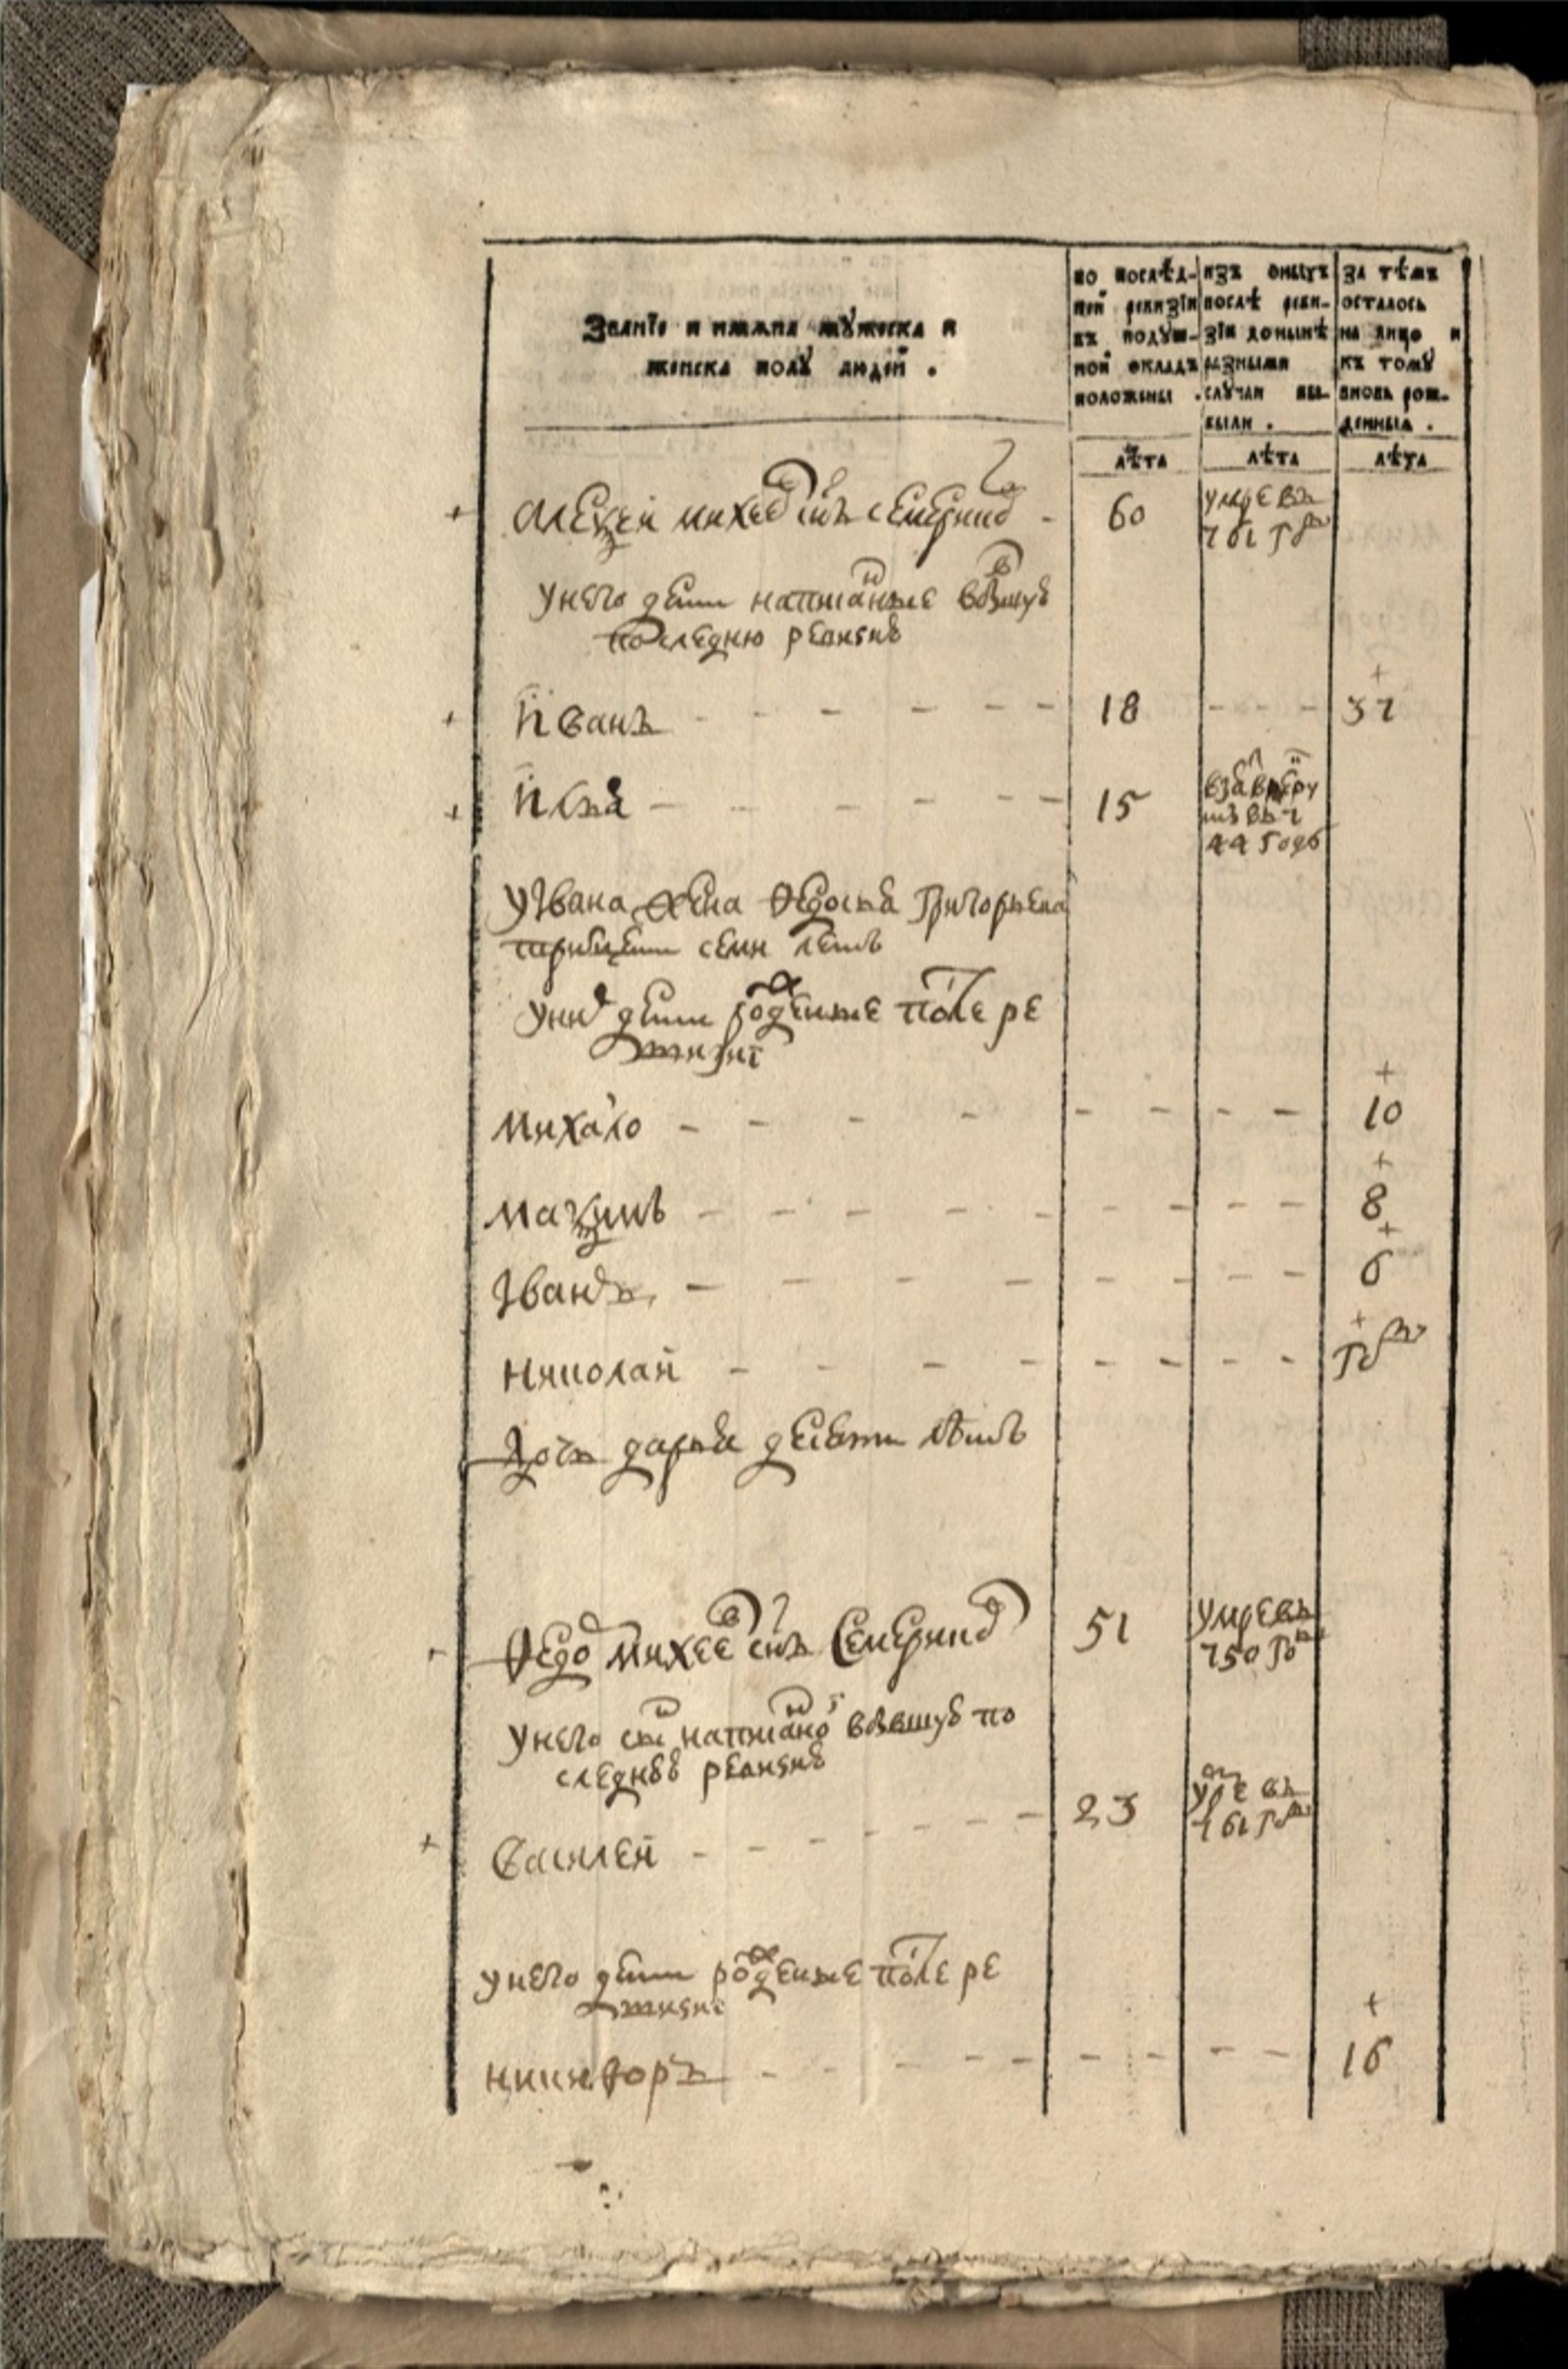 Званїе и имяна мꙋжеска и
женска полꙋ людей .
по послѣд-
ней ревизїи
въ подꙋш-
ной окладъ
положены .
изъ оныхъ
послѣ реви-
зїи донынѣ
разными
слꙋчаи вы-
были .
за тѣмъ
осталось
на лицо и
къ томꙋ
вновь рож-
денныя .
лѣта лѣта лѣта
Алеѯей михеев снъ семернин - 60 умре въ
761 году
унего дети написаныеѣ вбывшую
последнюю ревизию
Иванъ - - - - - 18 - - - 37
Илья - - - - - 15
44 году
у Ивана жена Ѳедосья Григорьева
тритцети семи летъ
уних дети рожденые после ре
визиї
михаило - - - - - - - - 10
маѯимъ - - - - - - - - 8
Иванъ - - - - - - - - 6
николай - - - - - - - - году
дочь дарья девети летъ
Ѳедор михеев снъ Семернин 51 умре въ
750 году
унего сын написаной вбывшую по
следнюю ревизию
Василей - - - - - - 23 умре въ
761 году
унего дети рожденые после ре
визиї
никиѳоръ - - - - - - - - 16